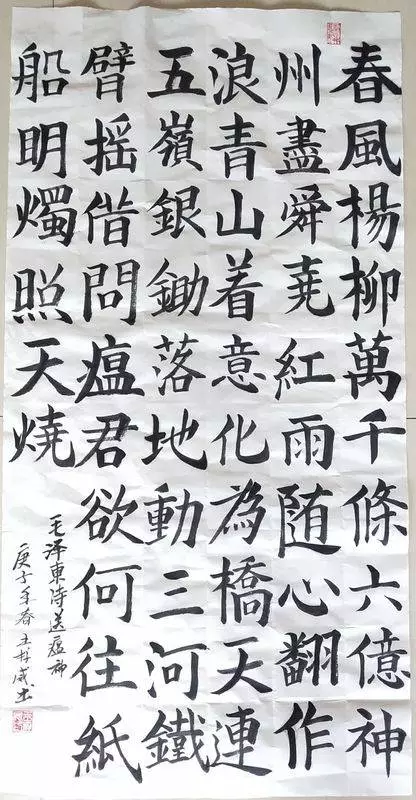 春風楊柳萬千條六億神
州盡舜尭紅雨随心翻作
浪青山着意化為橋天連
五嶺銀鋤落地動三河鐵
臂摇借問瘟君欲何往紙
船明燭照天燒
毛泽東诗送瘟神
庚子年春王